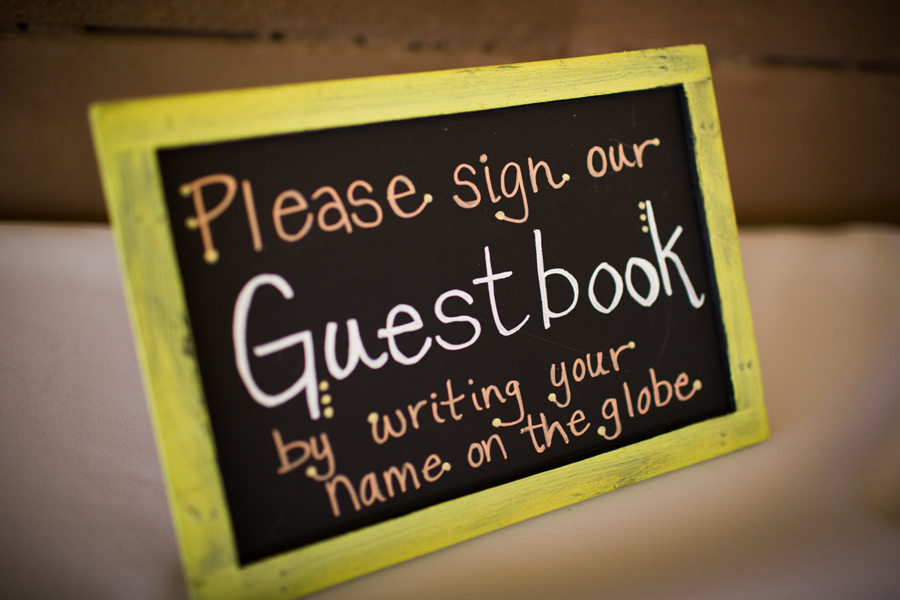 Please sign our
Guestbook
by writing your
name on the globe